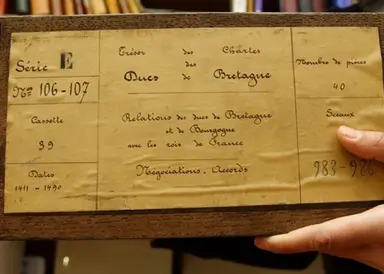 Série E
Nos 106-107
Cassette
39
Dates
1411 - 1490
Trésor des Chartes
des
Ducs de Bretagne
Relations des ducs de Bretagne
et de Bourgogne
avec les rois de France
Négociations. Accords
Nombre de pièces
40
Sceaux
983-98